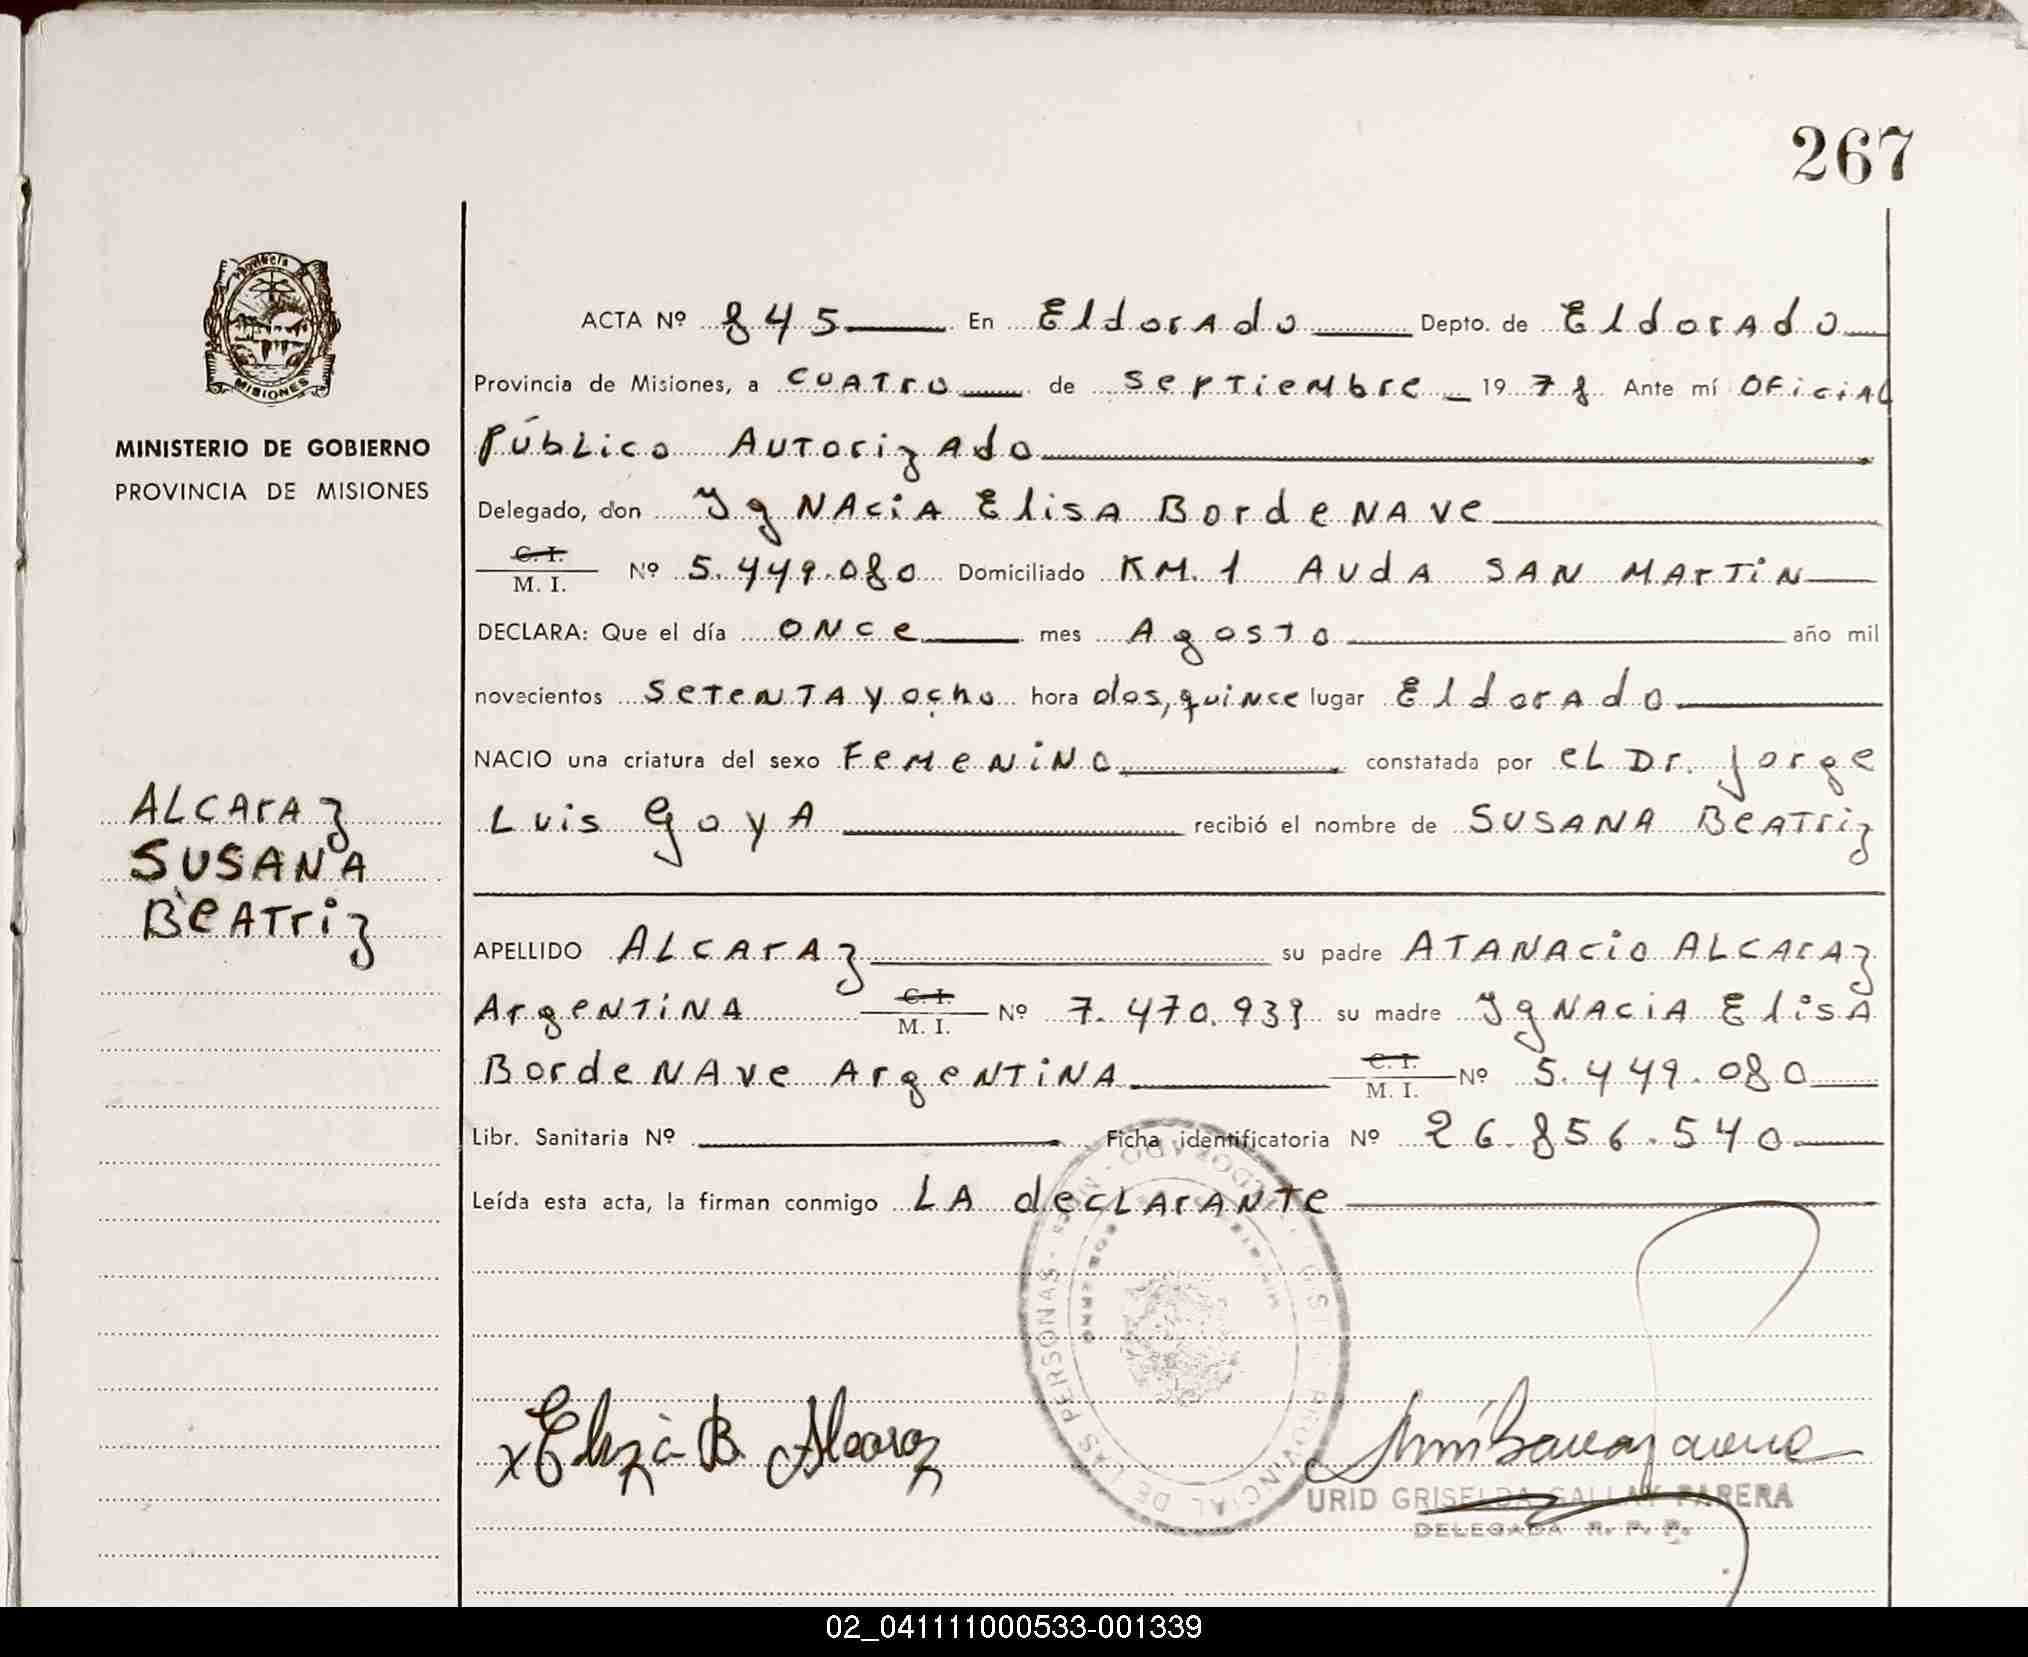 267
Provincia
MISIONES
MINISTERIO DE GOBIERNO
PROVINCIA DE MISIONES
ALCArAz
SUSANA
BeATriz
ACTA Nº 845 En EldorAdo Depto. de EldorAdo
Provincia de Misiones, a cuATro de sepTieMbre 1978 Ante mí OFiciAL
Público AuTorizAdo
Delegado, don YgNAciA ElisA BordeNAve
C. I.
M. I. Nº 5.449.080 Domiciliado KM. 1 AvdA SAN MArTiN
DECLARA: Que el día oNce mes AgosTo año mil
novecientos seTeNTA y ocho hora dos, quince lugar EldorAdo
NACIO una criatura del sexo FeMeNiNo constatada por eL Dr. Jorge
Luis GoyA recibió el nombre de SUSANA BeATriz
APELLIDO ALCArAz su padre ATANAcio ALCArAz
ArgeNTiNA C. I.
M. I. Nº 7.470.939 su madre YgNAciA ElisA
BordeNAve ArgeNTiNA C. I.
M. I. Nº 5.449.080
Libr. Sanitaria Nº Ficha identificatoria Nº 26.856.540
Leída esta acta, la firman conmigo LA decLArANTe
PROVINCIAL DE LAS PERSONAS
x Eliza B. Alcaraz
URID GRISELDA GALLAY PARERA
DELEGADA R. P. P.
02_041111000533-001339